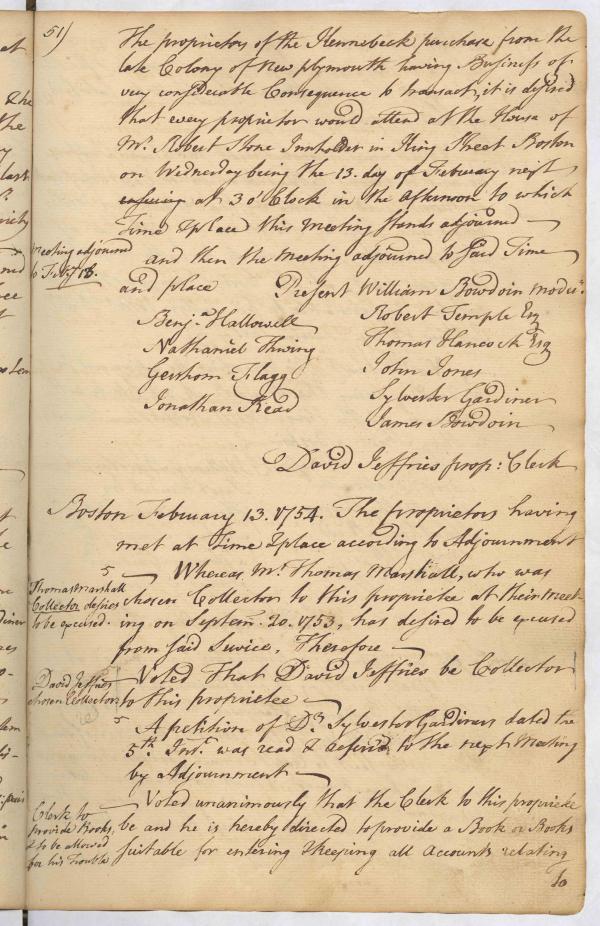 51)
The proprietors of the Kennebeck purchase from the
late Colony of New plymouth having Business of
very considerable Consequence to transact, it is desired
that every proprietor would attend at the House of
Mr. Robert Stone Innholder in King Street Boston
on Wednesday being the 13. day of February next
ensuing at 3 o'Clock in the afternoon to which
Time & place this meeting stands adjourned —
meeting adjournd
to Feby 13.
and then the meeting adjourned to said Time
and place Present William Bowdoin modr.
Benja. Hallowell
Nathaniel Thwing
Gershom Flagg
Jonathan Read
Robert Temple Esq
Thomas Hancock Esq
John Jones
Sylvester Gardiner
James Bowdoin
David Jeffries prop: Clerk
Boston February 13. 1754. The proprietors having
met at Time & place according to Adjournment
5
Thomas Marshall
Collector desires
to be excused.
— Whereas Mr. Thomas Marshall, who was
chosen Collector to this proprietee at their meet-
ing on Septem. 20. 1753, has desired to be excused
from said Service, Therefore —
David Jeffries
chosen Collector
— Voted That David Jeffries be Collector
to this proprietee —
5
A petition of Dr. Sylvester Gardiners dated the
5th. Inst. was read & referd to the next Meeting
by Adjournment —
Clerk to
provide Books,
& to be allowed
for his Trouble
— Voted unanimously that the Clerk to this proprietee
be and he is hereby directed to provide a Book or Books
suitable for entering & keeping all accounts relating
to